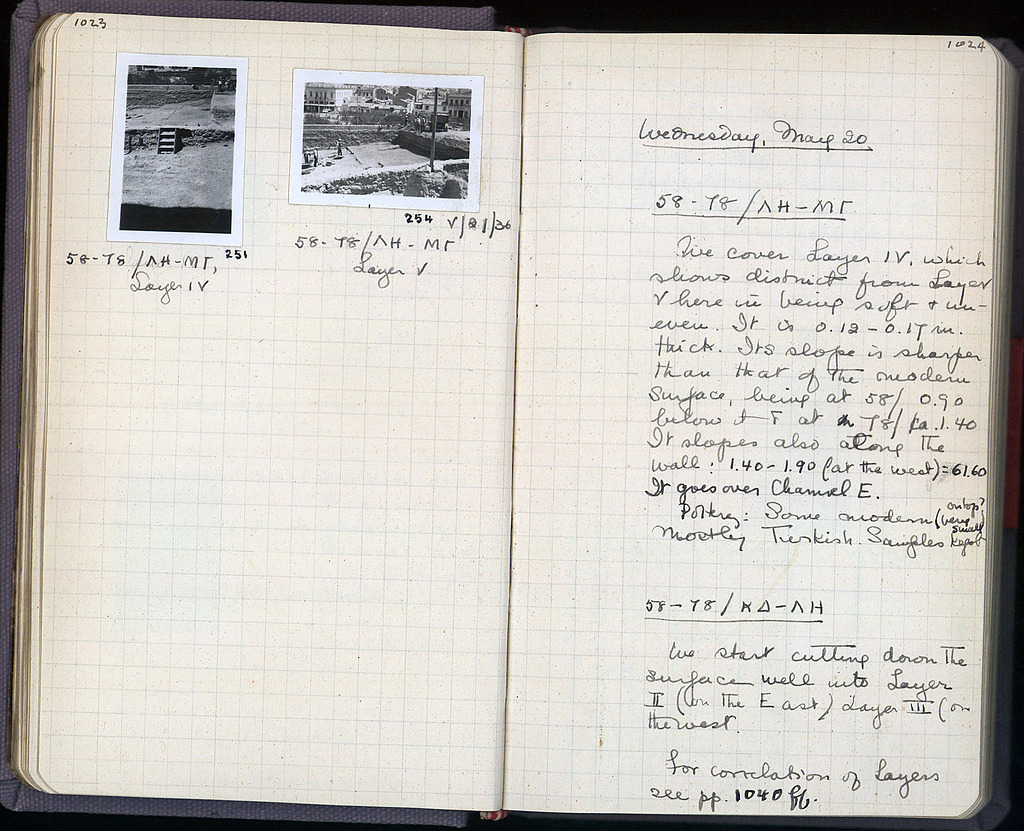 1023
251
58-78/ΛΗ-ΜΓ,
Layer IV
254 V/21/36
58-78/ΛΗ-ΜΓ
Layer V
1024
Wednesday, May 20
58-78/ΛΗ-ΜΓ
We cover Layer IV, which
shows distinct from Layer
V here in being soft & un-
even. It is 0.12-0.17 m.
thick. Its slope is sharper
than that of the modern
surface, being at 58/ 0.90
below at 78/ ca. 1.40
It slopes also along the
wall: 1.40-1.90 (at the west) = 61.60
It goes over Channel E.
Pottery: Some modern (very small on top?)
Mostly Turkish. Samples kept
58-78/ΚΔ-ΛΗ
We start cutting down the
surface well into Layer
II (on the East) Layer III (on
the west.
For correlation of Layers
see pp. 1040 ff.